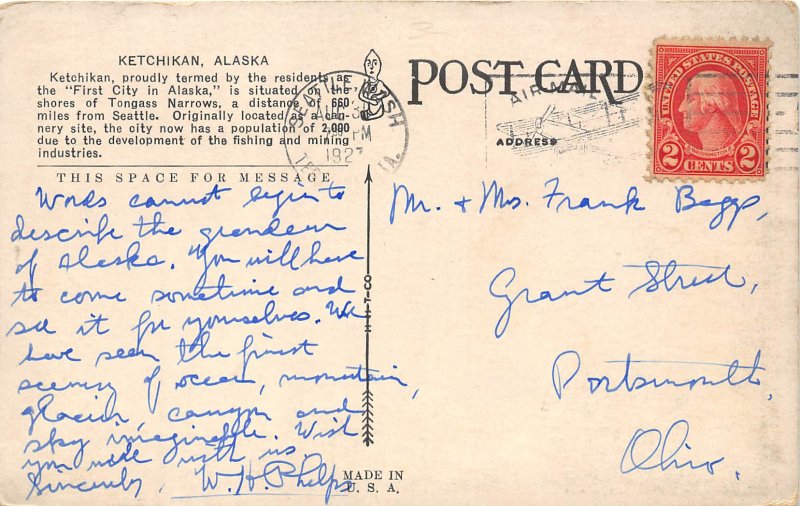 KETCHIKAN, ALASKA
Ketchikan, proudly termed by the residents as
the "First City in Alaska," is situated on the
shores of Tongass Narrows, a distance of 660
miles from Seattle. Originally located as a can-
nery site, the city now has a population of 2,000
due to the development of the fishing and mining
industries.
THIS SPACE FOR MESSAGE
Words cannot begin to
describe the grandeur
of Alaska. You will have
to come sometime and
see it for yourselves. We
have seen the finest
scenery of ocean, mountain,
glacier, canyon and
sky imaginable. Wish
you were with us.
Sincerely, W. H. Phelps
POST CARD
ADDRESS
SEATTLE WASH
AUG
PM
1927
AIR MAIL
UNITED STATES POSTAGE
2 CENTS 2
Mr. + Mrs. Frank Beggs,
Grant Street,
Portsmouth,
Ohio.
H-H-T-CO
MADE IN
U. S. A.